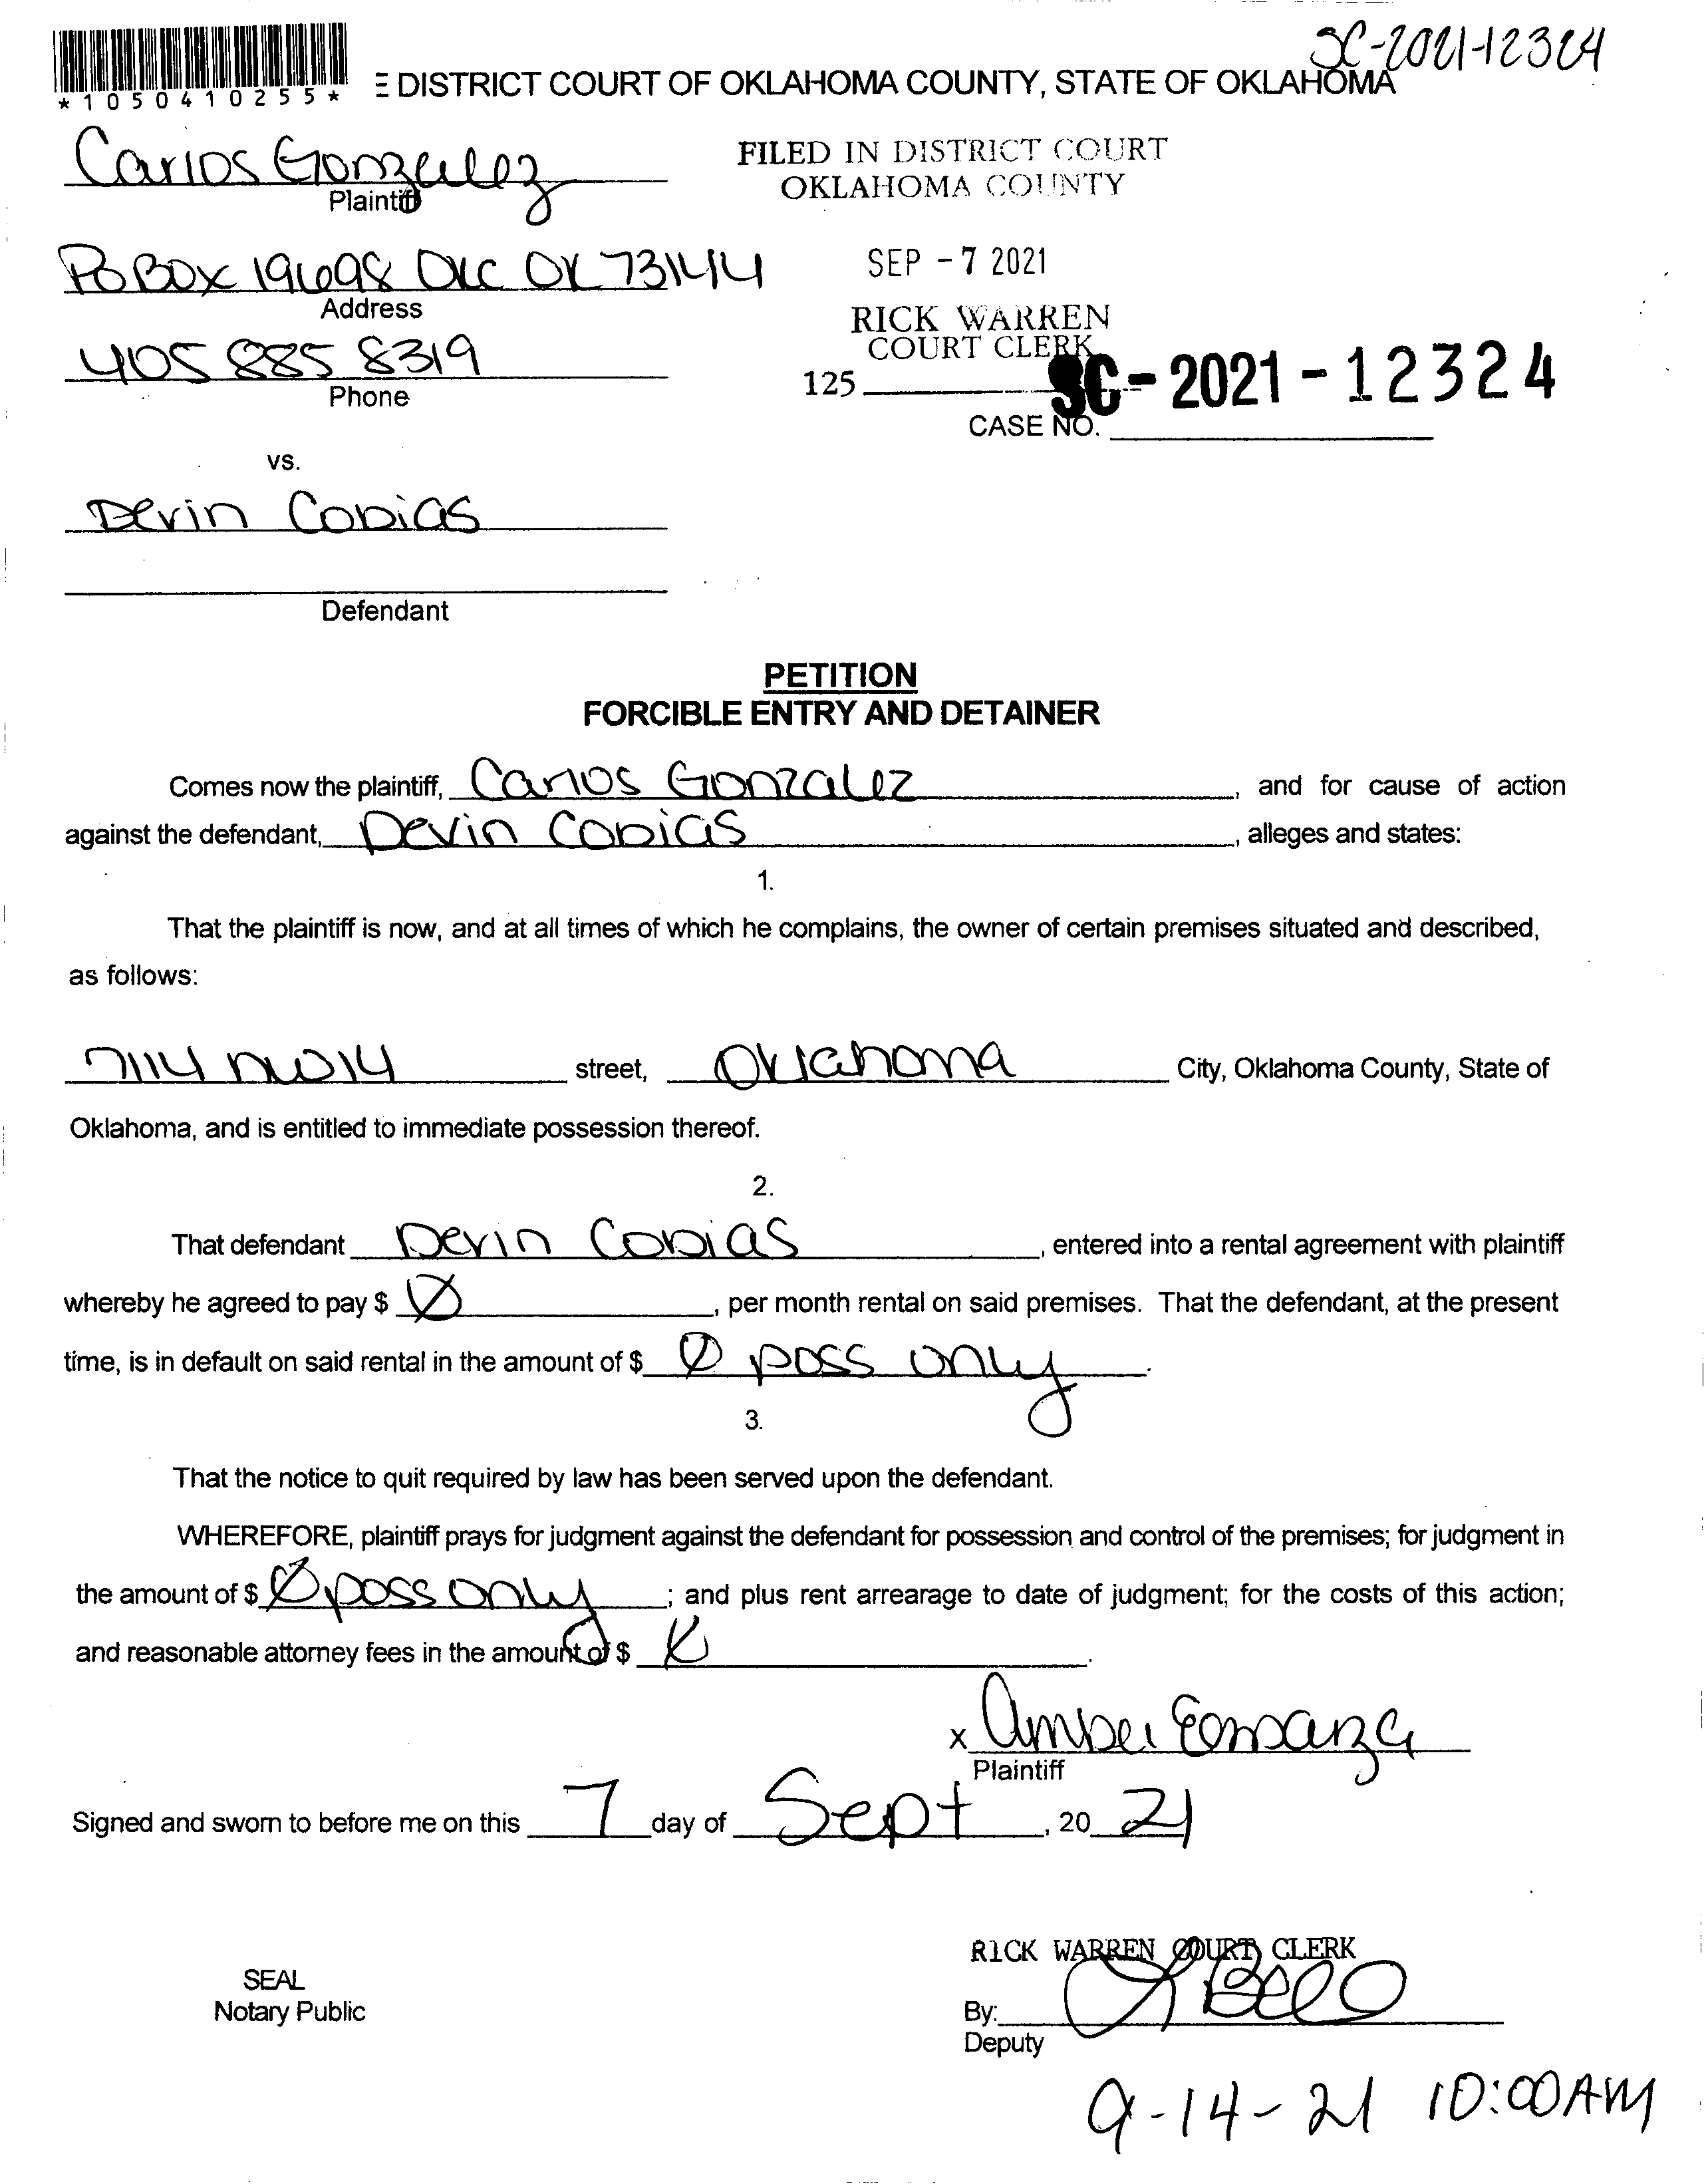 SC-2021-12324
*1050410255*
E DISTRICT COURT OF OKLAHOMA COUNTY, STATE OF OKLAHOMA
Carlos Gonzalez
Plaintiff
FILED IN DISTRICT COURT
OKLAHOMA COUNTY
PO BOX 19698 OKC OK 73144
Address
SEP -7 2021
RICK WARREN
COURT CLERK
405 885 8319
Phone
125
SC-2021-12324
CASE NO.
vs.
Devin Cobias
Defendant
PETITION
FORCIBLE ENTRY AND DETAINER
Comes now the plaintiff, Carlos Gonzalez, and for cause of action
against the defendant, Devin Cobias, alleges and states:
1.
That the plaintiff is now, and at all times of which he complains, the owner of certain premises situated and described,
as follows:
7114 NW 14 street, Oklahoma City, Oklahoma County, State of
Oklahoma, and is entitled to immediate possession thereof.
2.
That defendant Devin Cobias, entered into a rental agreement with plaintiff
whereby he agreed to pay $ Ø, per month rental on said premises. That the defendant, at the present
time, is in default on said rental in the amount of $ Ø poss only.
3.
That the notice to quit required by law has been served upon the defendant.
WHEREFORE, plaintiff prays for judgment against the defendant for possession and control of the premises; for judgment in
the amount of $ Ø poss only; and plus rent arrearage to date of judgment; for the costs of this action;
and reasonable attorney fees in the amount of $ Ø.
x Amber Esparza
Plaintiff
Signed and sworn to before me on this 7 day of Sept, 20 21
RICK WARREN COURT CLERK
SEAL
Notary Public
By:
Deputy
9-14-21 10:00AM